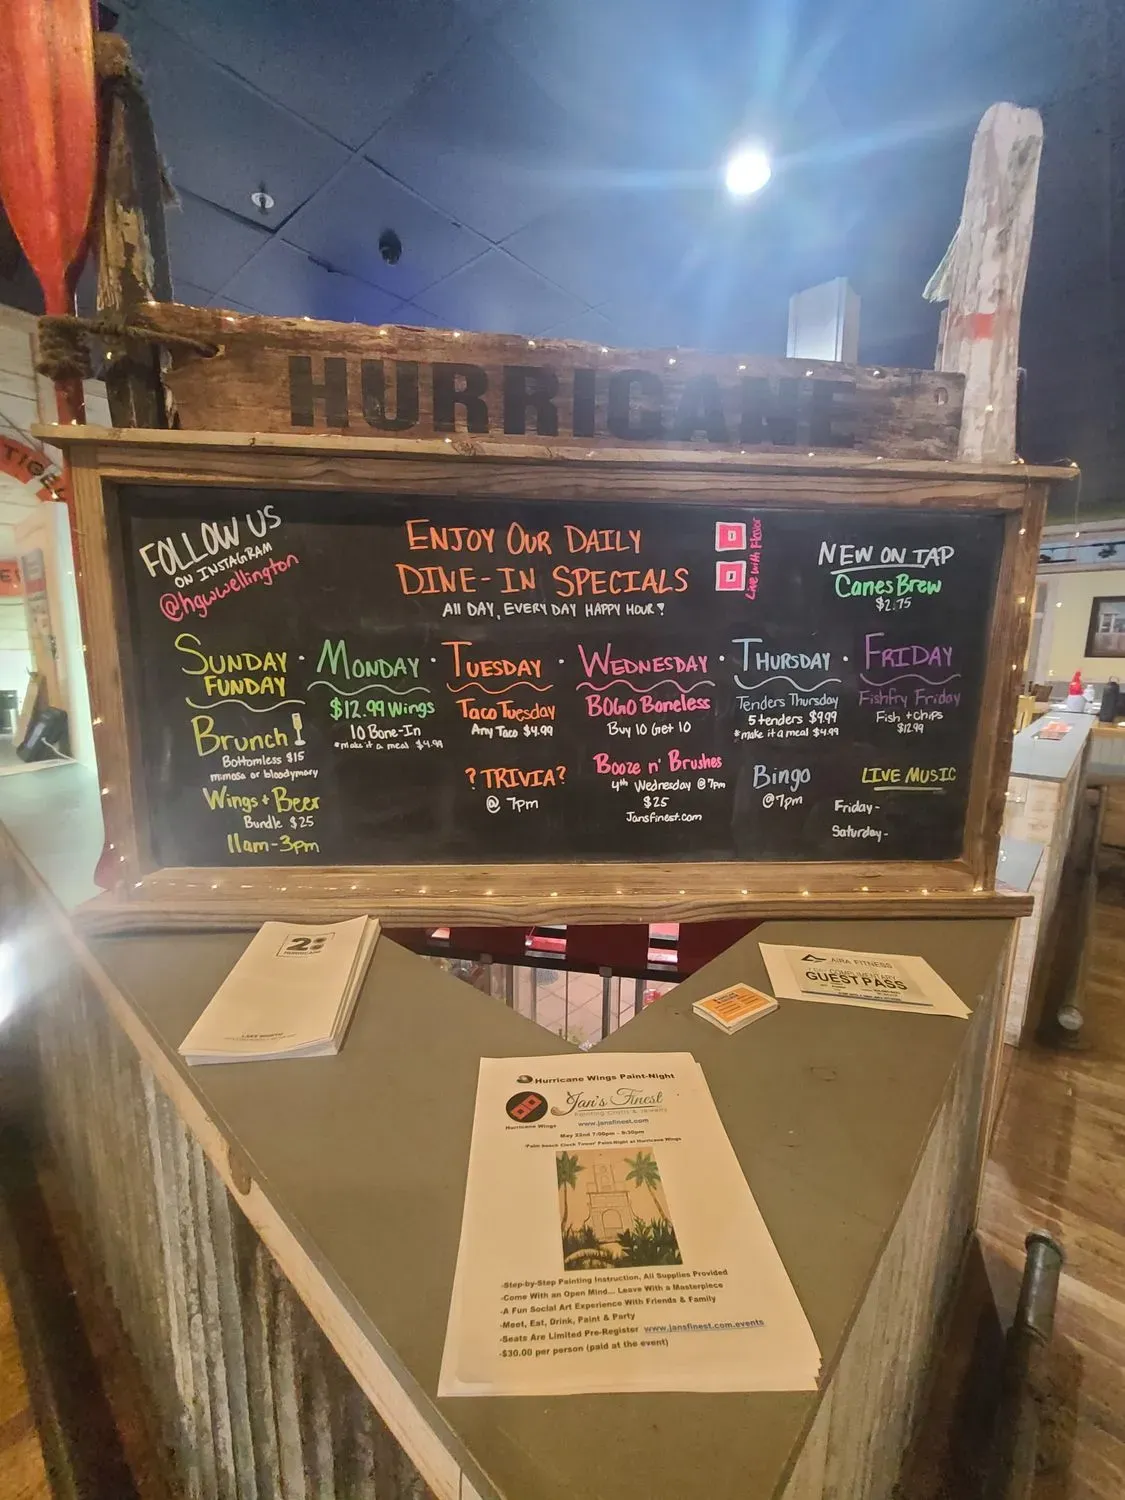 HURRICANE
FOLLOW US
ON INSTAGRAM
@hgwwellington
ENJOY OUR DAILY
DINE-IN SPECIALS
All DAY, EVERY DAY HAPPY HOUR!
Live with Flavor
NEW ON TAP
Canes Brew
$2.75
SUNDAY
FUNDAY
Brunch
Bottomless $15
mimosa or bloodymary
Wings + Beer
Bundle $25
11am-3pm
MONDAY
$12.99 Wings
10 Bone-In
*make it a meal $4.99
TUESDAY
Taco Tuesday
Any Taco $4.99
?TRIVIA?
@ 7pm
WEDNESDAY
BOGO Boneless
Buy 10 Get 10
Booze n' Brushes
4th Wednesday @ 7pm
$25
Jansfinest.com
THURSDAY
Tenders Thursday
5 tenders $9.99
*make it a meal $4.99
Bingo
@ 7pm
FRIDAY
Fishfry Friday
Fish + chips
$12.99
LIVE MUSIC
Friday-
Saturday-
HURRICANE
AIRA FITNESS
COMPLIMENTARY
GUEST PASS
Hurricane Wings Paint-Night
Jan's Finest
Hurricane Wings
www.jansfinest.com
May 22nd 7:00pm - 9:30pm
'Palm beach Clock Tower' Paint-Night at Hurricane Wings
-Step-by-Step Painting Instruction, All Supplies Provided
-Come With an Open Mind... Leave With a Masterpiece
-A Fun Social Art Experience With Friends & Family
-Meet, Eat, Drink, Paint & Party
-Seats Are Limited Pre-Register www.jansfinest.com.events
-$30.00 per person (paid at the event)